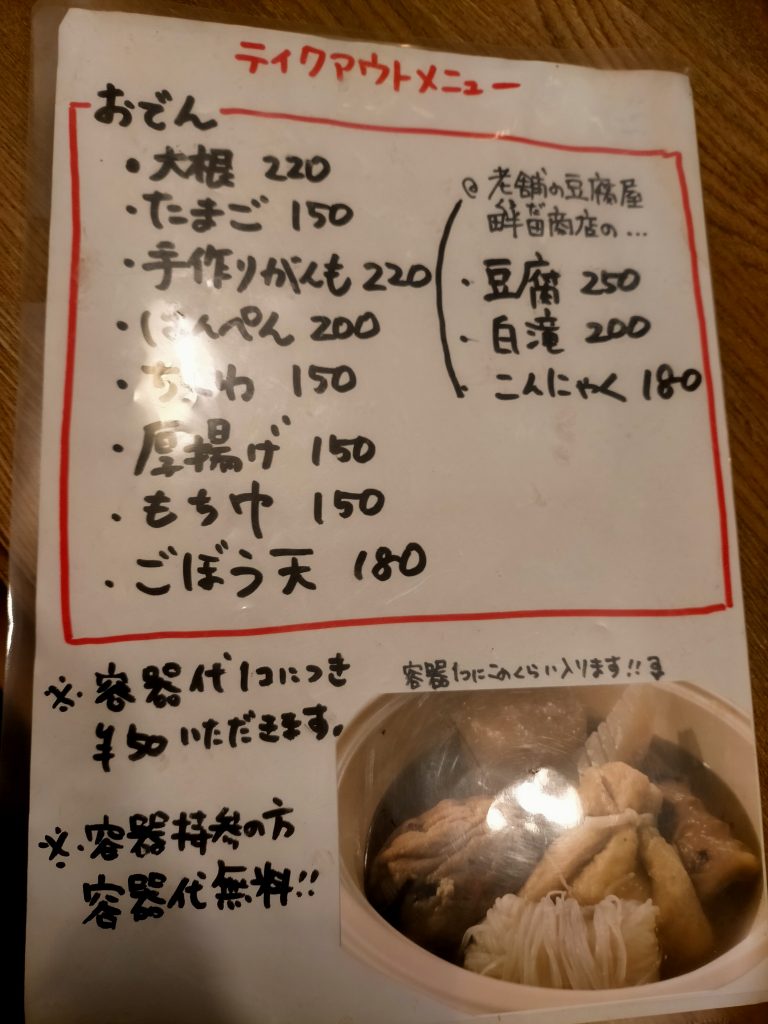 テイクアウトメニュー
おでん
・大根 220
・たまご 150
・手作りがんも 220
・はんぺん 200
・ちくわ 150
・厚揚げ 150
・もち巾 150
・ごぼう天 180
@ 老舗の豆腐屋
畔田商店の...
・豆腐 250
・白滝 200
・こんにゃく 180
※容器代1コにつき
¥50いただきます。
※容器持参の方
容器代無料!!
容器1つにこのくらい入ります!!